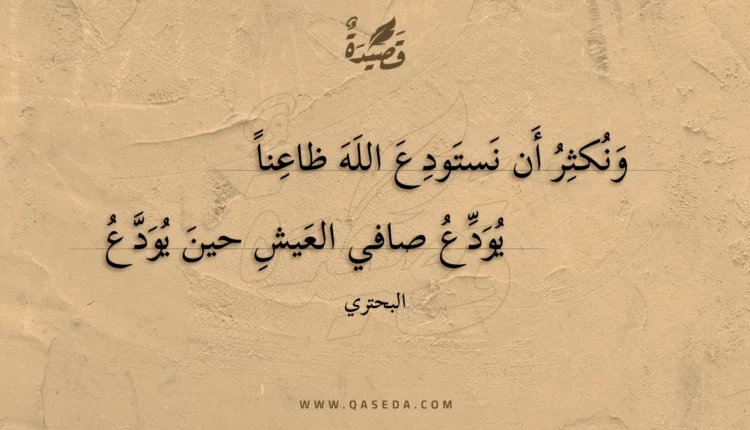 قَصِيدَةٌ
وَنُكثِرُ أَن نَستَودِعَ اللَهَ ظاعِناً
يُوَدِّعُ صافي العَيشِ حينَ يُوَدَّعُ
البحتري
WWW.QASEDA.COM